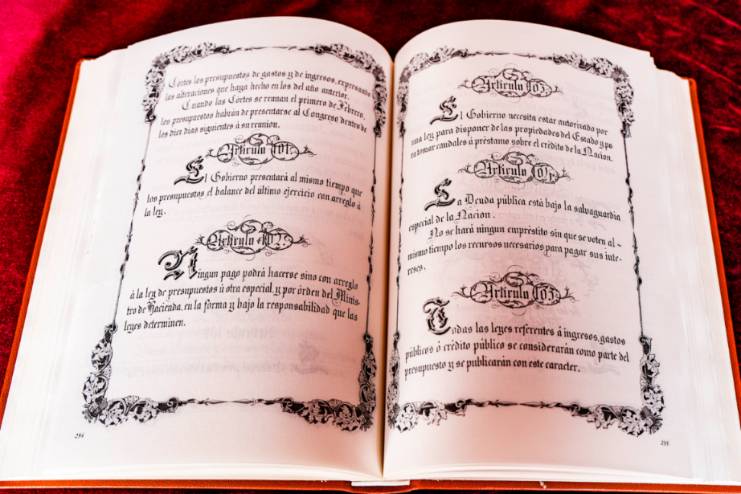 Cortes los presupuestos de gastos y de ingresos, expresando
las alteraciones que haya hecho en los del año anterior.
Cuando las Cortes se reunan el primero de Febrero,
los presupuestos habrán de presentarse al Congreso dentro de
los diez dias siguientes á su reunion.
Artículo 101.
El Gobierno presentará al mismo tiempo que
los presupuestos el balance del último ejercicio con arreglo á
la ley.
Artículo 102.
Ningun pago podrá hacerse sino con arreglo
á la ley de presupuestos ú otra especial, y por órden del Minis-
tro de Hacienda, en la forma y bajo la responsabilidad que las
leyes determinen.
294
Artículo 103.
El Gobierno necesita estar autorizado por
una ley para disponer de las propiedades del Estado y pa-
ra tomar caudales á préstamo sobre el crédito de la Nacion.
Artículo
La Deuda pública está bajo la salvaguardia
especial de la Nacion.
No se hará ningun empréstito sin que se voten al-
mismo tiempo los recursos necesarios para pagar sus inte-
reses.
Artículo 105.
Todas las leyes referentes á ingresos, gastos
públicos ó crédito público se considerarán como parte del
presupuesto y se publicarán con este caracter.
295